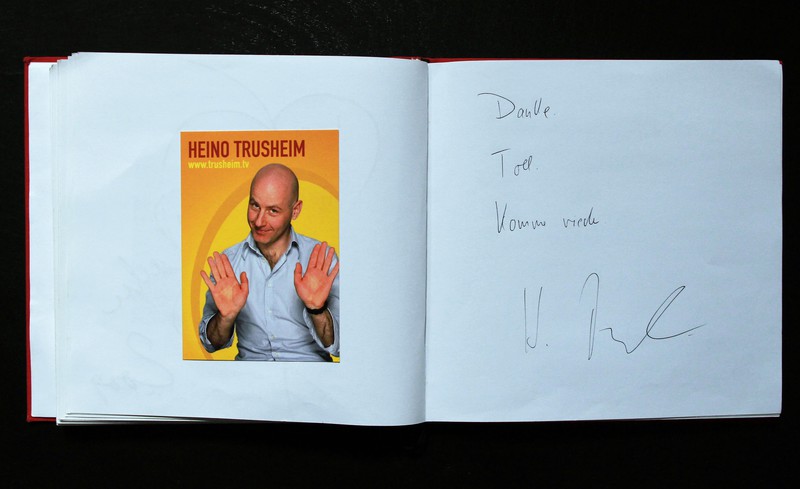 HEINO TRUSHEIM
www.trusheim.tv
Danke.
Toll.
Komme wieder
H.